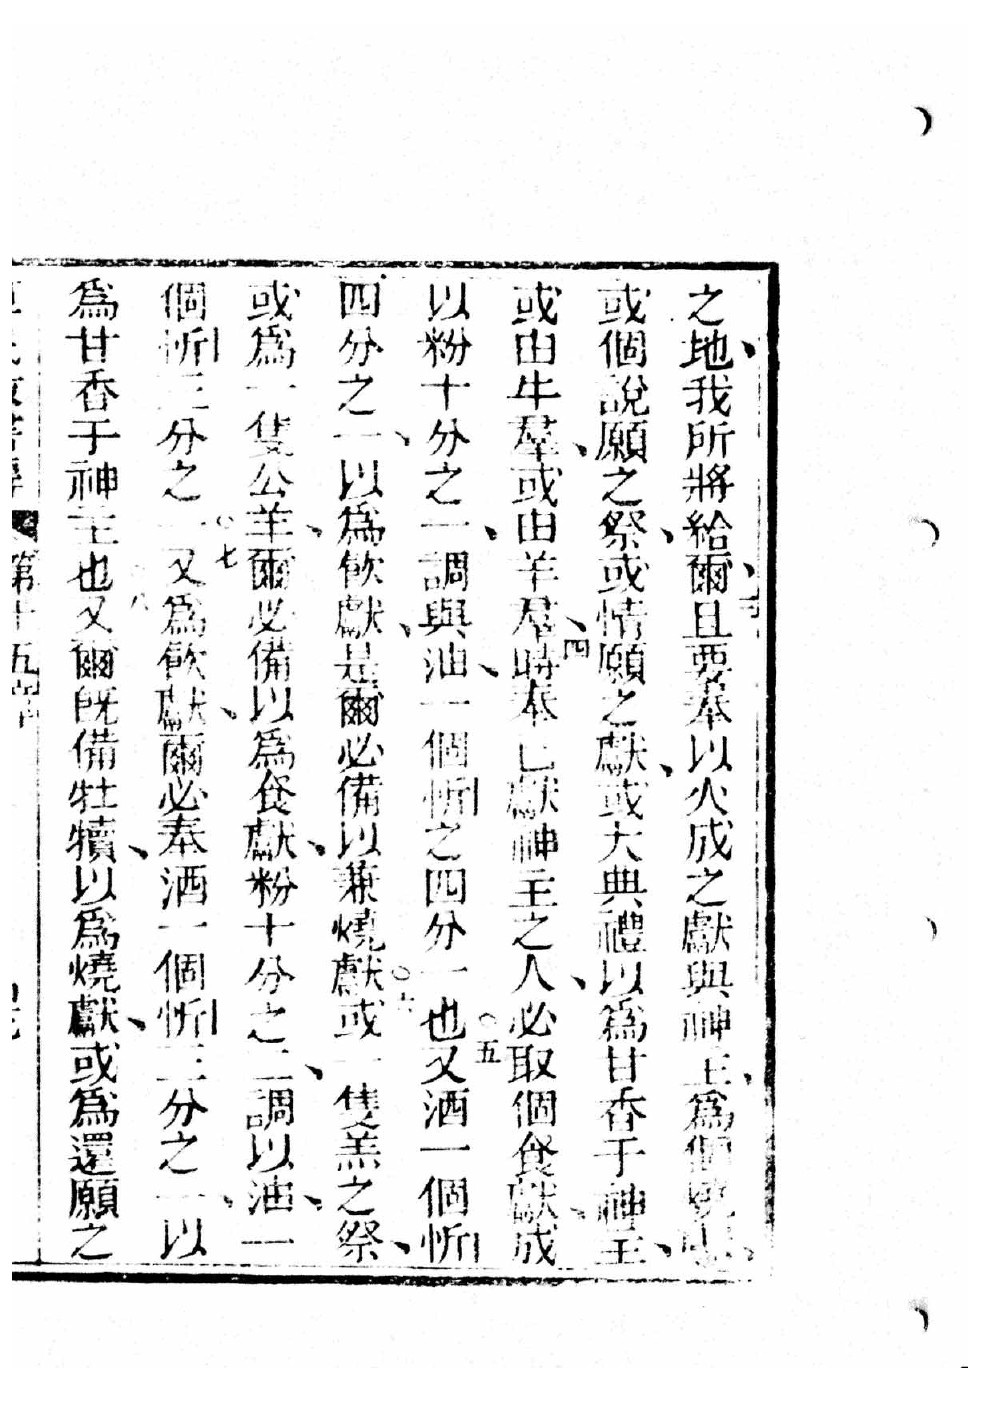 之地我所將給爾三且要奉以火成之獻與神主爲個燒獻
或個說願之祭或情願之獻或大典禮以爲甘香于神主
或由牛羣或由羊羣四時奉己獻神主之人必取個食獻成
以粉十分之一調與油一個忻之四分一也五又酒一個忻
四分之一以爲飲獻是爾必備以兼燒獻或六一隻羔之祭
或爲一隻公羊爾必備以爲食獻粉十分之二調以油一
個忻三分之一七又爲飲獻爾必奉酒一個忻三分之一以
爲甘香于神主也八又爾既備牡犢以爲燒獻或爲還願之
第十五章